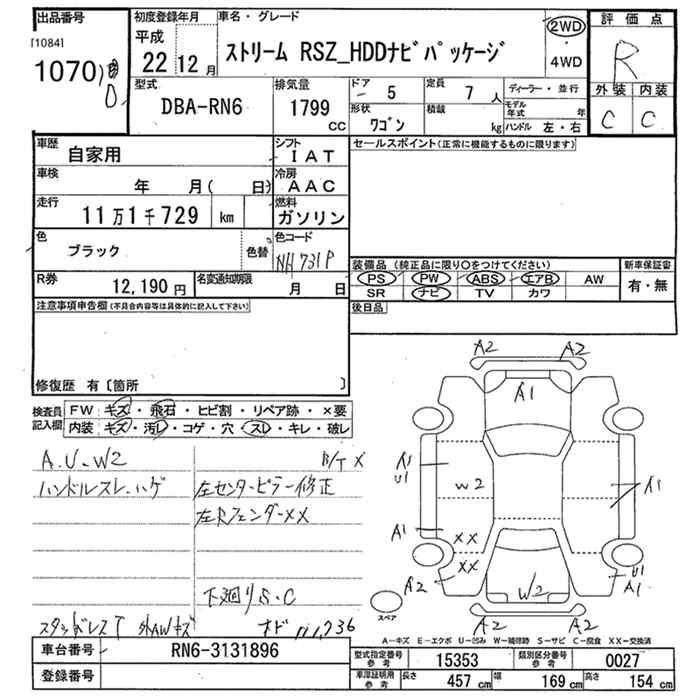 出品番号
[1084]
1070
初度登録年月
平成
22年 12月
車名・グレード
ストリーム RSZ_HDDナビパッケージ
2WD
・
4WD
評価点
R
外装 内装
C C
型式
DBA-RN6
排気量
1799
CC
ドア
5
定員
7 人
形状
ワゴン
積載
kg
ディーラー・並行
モデル年式 年
ハンドル 左・右
車歴
自家用
シフト
IAT
車検
年 月( 日)
冷房
AAC
走行
11万1千729 km
燃料
ガソリン
色
ブラック
色替
色コード
NH731P
R券
12,190 円
名変通知期限
月 日
セールスポイント(正常に機能するものに限ります)
装備品 (純正品に限り○をつけてください)
新車保証書
PS PW ABS エアB AW
SR ナビ TV カワ
有・無
後日品
注意事項申告欄(不具合内容等は具体的に記入して下さい)
修復歴 有〔箇所 〕
検査員
記入欄
FW キズ・飛石・ヒビ割・リペア跡・×要
内装 キズ・汚レ・コゲ・穴・スレ・キレ・破レ
A.U.W2
B/T X
ハンドルスレ.ハゲ
左センターピラー修正
左Rフェンダーxx
下廻りS.C
スタッドレスT 外AWキズ
車台番号
RN6-3131896
登録番号
A2 A2
A1
A1
U1
W2
A1
A1
XX
XX
A2
W2
U1
A1
A2 A2
スペア
A-キズ E-エクボ U-凹み W-補修跡 S-サビ C-腐食 XX-交換済
型式指定番号
参考
15353
類別区分番号
参考
0027
車庫証明用
参考
長さ
457 cm
幅
169 cm
高さ
154 cm